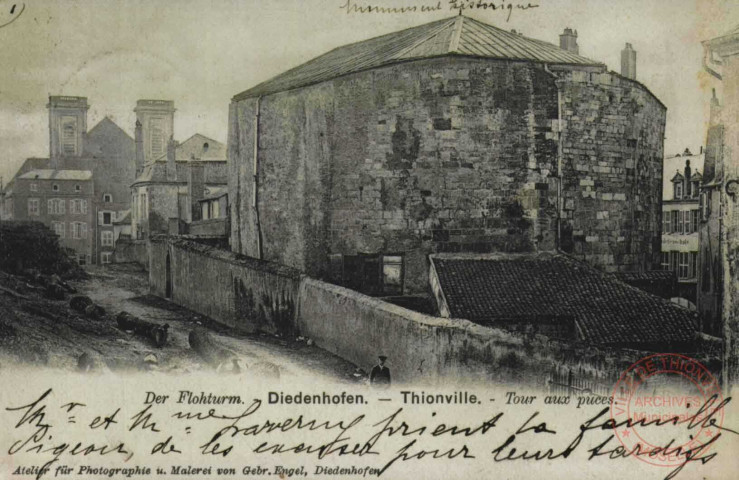 1)
Monument historique
Der Flohturm. Diedenhofen. — Thionville. - Tour aux puces.
Mr et Mme Laverny prient la famille
Pigeon, de les excuser pour leurs tardifs
Atelier für Photographie u. Malerei von Gebr. Engel, Diedenhofen
VILLE DE THIONVILLE
ARCHIVES
Municipales